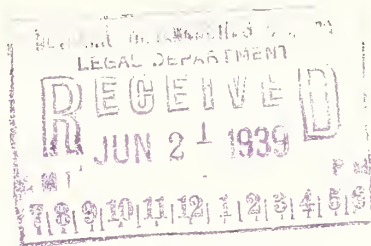 LEGAL DEPARTMENT
RECEIVED
JUN 21 1939
7|8|9|10|11|12|1|2|3|4|5|6